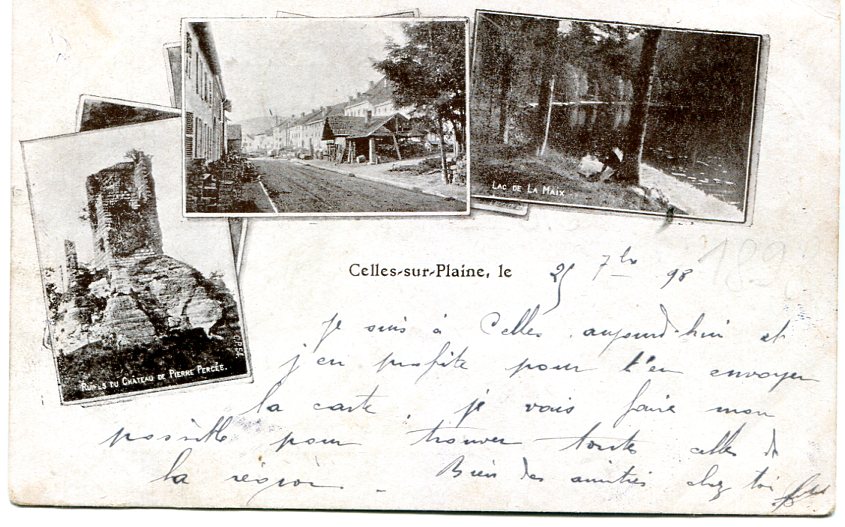 LAC DE LA MAIX
RUINES DU CHÂTEAU DE PIERRE PERCÉE.
Celles-sur-Plaine, le 25 7bre 98
1898
Je suis à Celles aujourd'hui et
j'en profite pour t'en envoyer
la carte. je vais faire mon
possible pour trouver toutes celles de
la région. Bien des amitiés chez toi